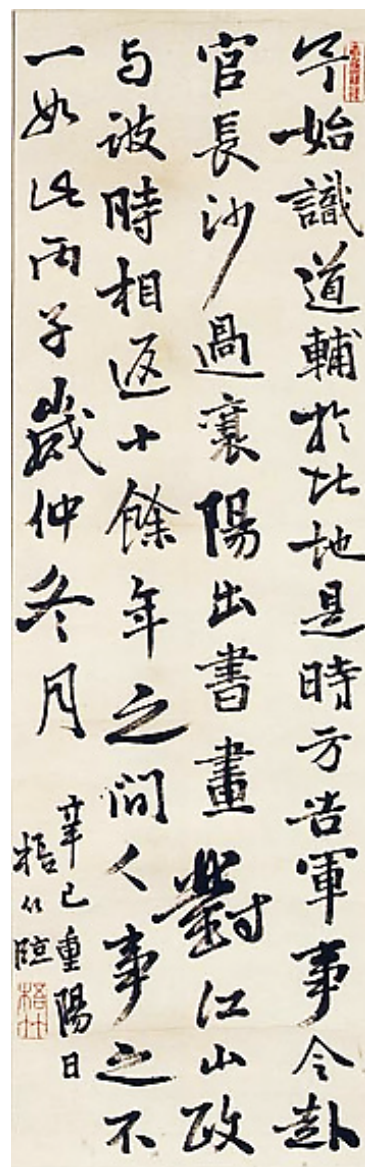 予始識道輔於此地是時方告軍事今赴
官長沙過襄陽出書畫對江山政
与彼時相返十餘年之間人事之不
一如此丙子歲仲冬月
辛巳重陽日